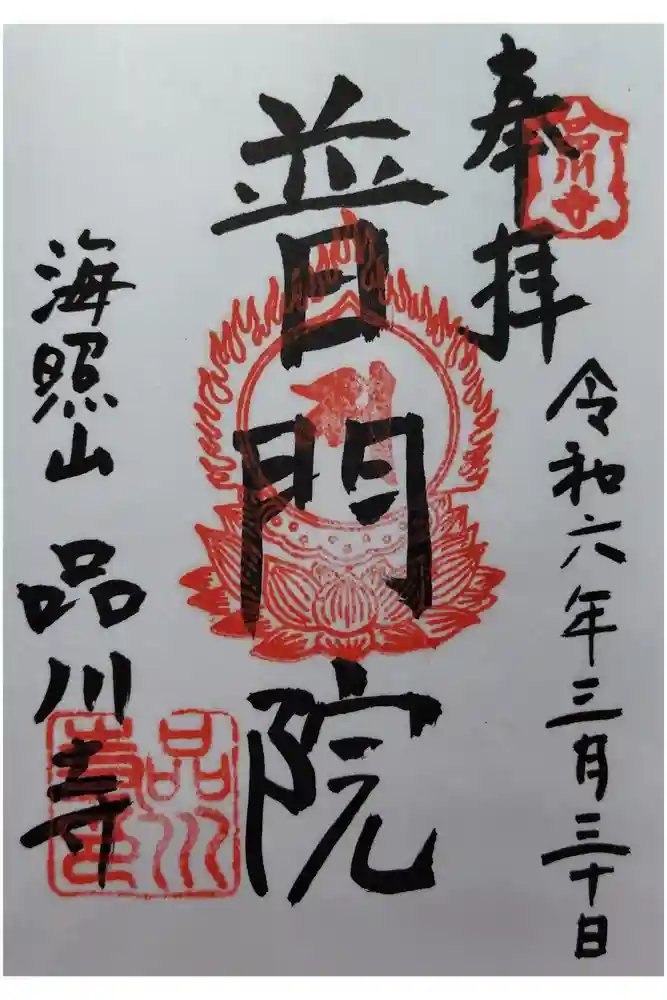 奉拝
品川寺
令和六年三月三十日
普門院
海照山
品川寺
品川寺印